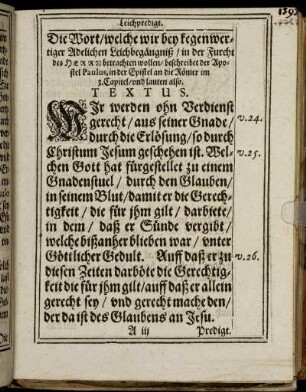 Leichpredigt.
Die Wort/welche wir bey kegenwer-
tiger Adelichen Leichbegängniß/ in der Furcht
des HERRN betrachten wollen/ beschreibet der Apo-
stel Paulus, in der Epistel an die Römer im
3. Capitel/vnd lauten also.
TEXTUS.
WJr werden ohn Verdienst
gerecht/aus seiner Gnade/ v.24.
durch die Erlösung/so durch
Christum Jesum geschehen ist. Wel-
chen Gott hat fürgestellet zu einem v.25.
Gnadenstuel/ durch den Glauben/
in seinem Blut/damit er die Gerech-
tigkeit / die für jhm gilt/ darbiete/
in dem/ daß er Sünde vergibt/
welche bißanher blieben war/ vnter
Göttlicher Gedult. Auff daß er zu v.26.
diesen Zeiten darböte die Gerechtig-
keit die für jhm gilt/auff daß er allein
gerecht sey/ vnd gerecht mache den/
der da ist des Glaubens an Jesu.
A iij Predigt.